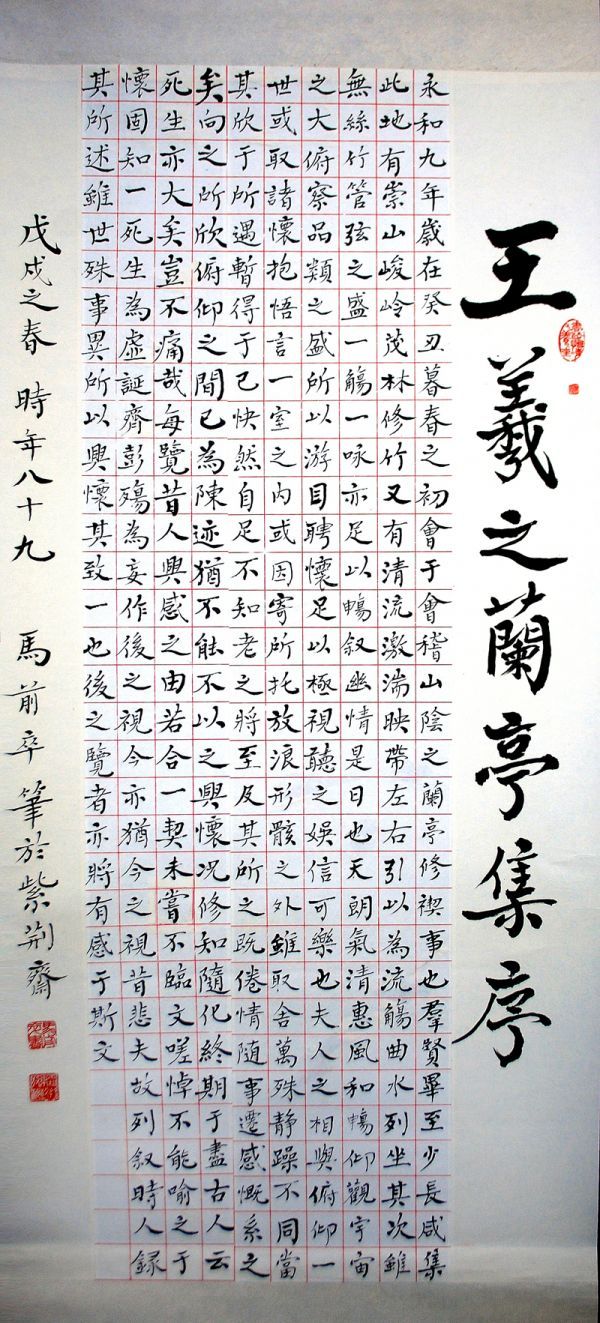 王羲之蘭亭集序
永和九年歲在癸丑暮春之初會于會稽山陰之蘭亭修禊事也羣賢畢至少長咸集
此地有崇山峻岭茂林修竹又有清流激湍映帶左右引以為流觴曲水列坐其次雖
無絲竹管弦之盛一觴一咏亦足以暢叙幽情是日也天朗氣清惠風和暢仰觀宇宙
之大俯察品類之盛所以游目聘懷足以極視聽之娛信可樂也夫人之相與俯仰一
世或取諸懷抱悟言一室之內或因寄所托放浪形骸之外雖取舍萬殊静躁不同當
其欣于所遇暫得于己快然自足不知老之將至及其所之既倦情隨事遷感慨系之
矣向之所欣俯仰之間已為陳迹猶不能不以之興懷况修知隨化終期于盡古人云
死生亦大矣豈不痛哉每覽昔人興感之由若合一契未嘗不臨文嗟悼不能喻之于
懷固知一死生為虛誕齊彭殤為妄作後之視今亦猶今之視昔悲夫故列叙時人錄
其所述雖世殊事異所以興懷其致一也後之覽者亦將有感于斯文
戊戌之春 時年八十九 馬前卒筆於紫荆齋